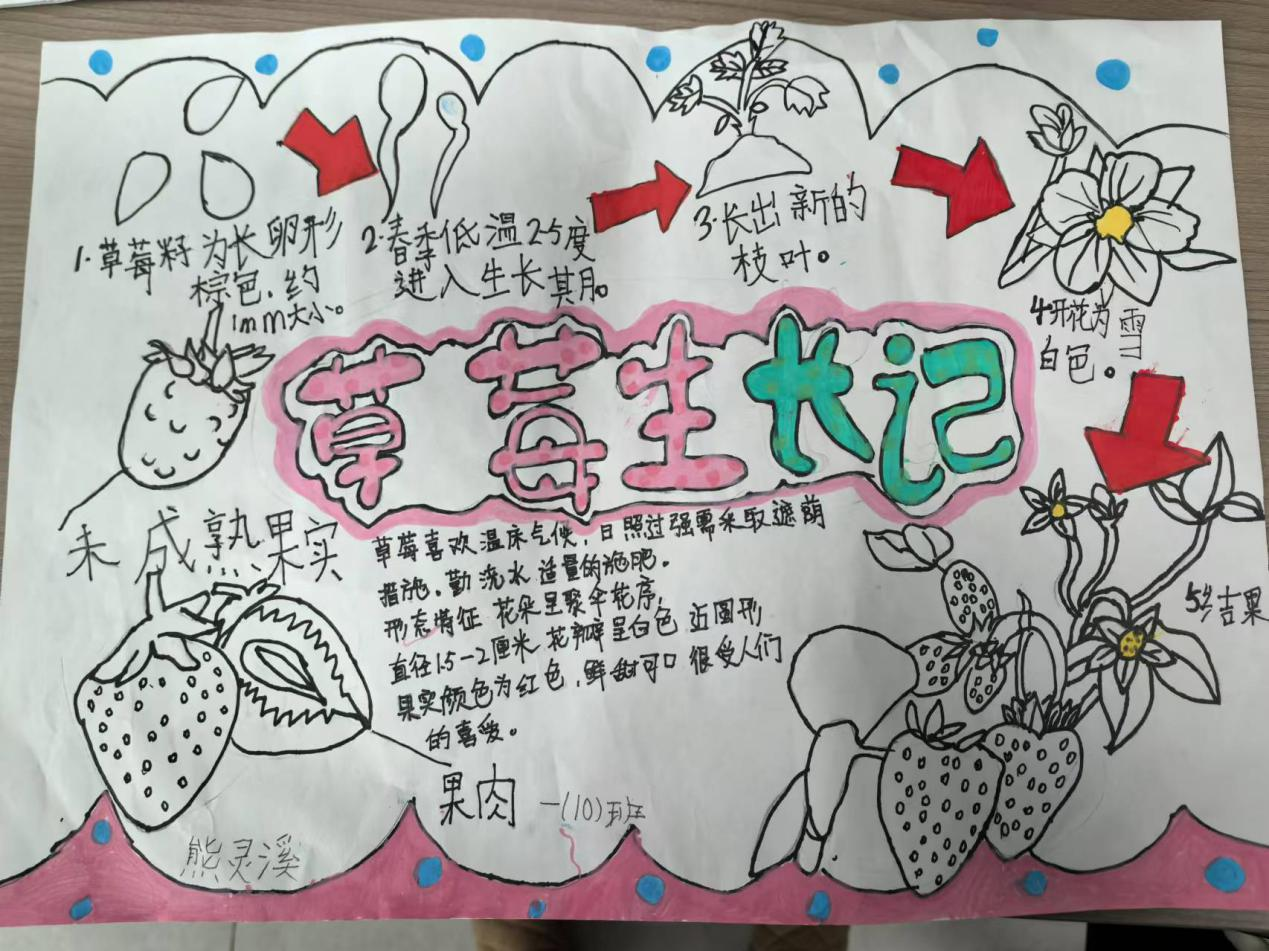 1.草莓籽为长卵形
棕色，约
1mm大小。
2.春季低温2-5度
进入生长其月。
3.长出新的
枝叶。
4开花为雪
白色。
草莓生长记
未成熟果实
草莓喜欢温床气候，日照过强需采取遮荫
措施。勤浇水 适量的施肥。
形态特征 花朵呈聚伞花序，
直径1.5-2厘米 花瓣呈白色 近圆形
果实颜色为红色，鲜甜可口 很受人们
的喜爱。
5结果
果肉
一(10)班
熊灵溪